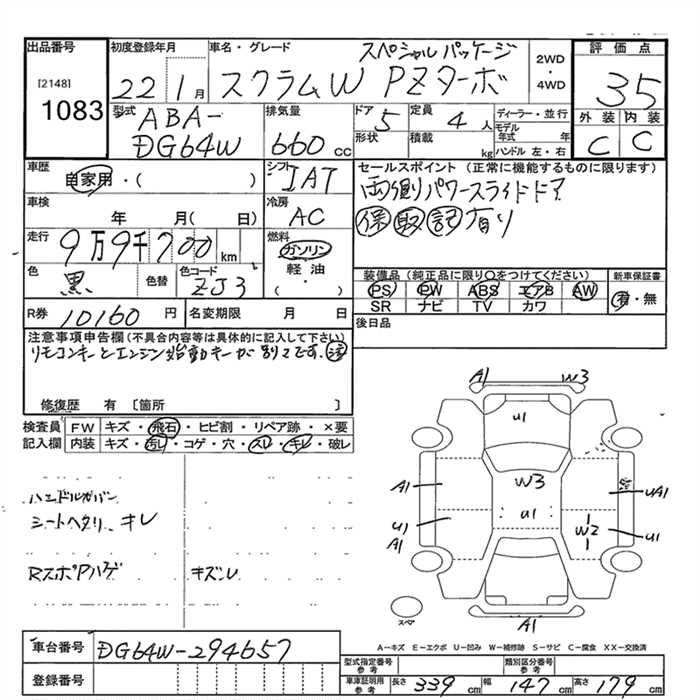 出品番号
[2148]
1083
初度登録年月
22年1月
車名・グレード
スペシャルパッケージ
スクラムW PZターボ
2WD
・
4WD
評価点
35
外装 内装
C C
型式
ABA-
DG64W
排気量
660 cc
ドア 5
形状
定員 4 人
積載 kg
ディーラー・並行
モデル
年式 年
ハンドル 左・右
車歴
自家用・( )
シフト
IAT
セールスポイント (正常に機能するものに限ります)
両側パワースライドドア
保 取 記 有り
車検
年 月( 日)
冷房
AC
走行
9万9千700km
燃料
ガソリン
軽油
・
( )
色
黒
色替
色コード
ZJ3
装備品 (純正品に限り○をつけてください)
PS PW ABS エアB AW
SR ナビ TV カワ
新車保証書
有・無
R券 10160 円
名変期限 月 日
後日品
注意事項申告欄 (不具合内容等は具体的に記入して下さい)
リモコンキーとエンジン始動キーが別々です.
修復歴 有 [箇所 ]
検査員
記入欄
FW キズ・飛石・ヒビ割・リペア跡・×要
内装 キズ・汚レ・コゲ・穴・スレ・キレ・破レ
ハンドルカバー
シートヘタリ、キレ
RスポPハゲ
キズ・レ
A1 W3
U1
A1 W3 UA1
U1
U1 W2 U1
A1
A1
スペア
A-キズ E-エクボ U-凹み W-補修跡 S-サビ C-腐食 XX-交換済
車台番号 DG64W-294657
登録番号
型式指定番号
参考
類別区分番号
参考
車庫証明用
参考
長さ 339 cm 幅 147 cm 高さ 179 cm